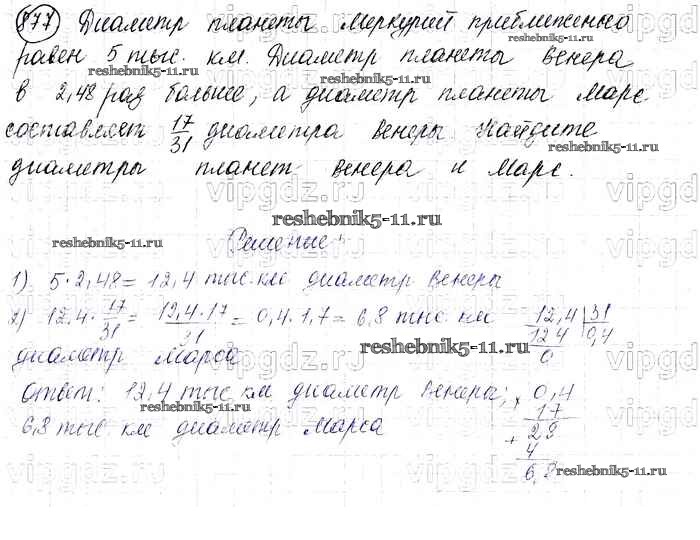 877 Диаметр планеты Меркурий приближенно
равен 5 тыс. км. Диаметр планеты Венера
в 2,48 раз больше, а диаметр планеты Марс
составляет 17/31 диаметра Венеры. Найдите
диаметры планет Венера и Марс.
Решение:
1) 5·2,48 = 12,4 тыс. км диаметр Венеры
2) 12,4 · 17/31 = 12,4·17/31 = 0,4·1,7 = 6,8 тыс км
диаметр Марса
12,4 31
124 0,4
0
Ответ: 12,4 тыс км диаметр Венера;
6,8 тыс км диаметр Марса
× 0,4
17
+ 28
4
6,8
reshebnik5-11.ru
reshebnik5-11.ru
reshebnik5-11.ru
reshebnik5-11.ru
reshebnik5-11.ru
reshebnik5-11.ru
reshebnik5-11.ru
reshebnik5-11.ru
vipgdz.ru